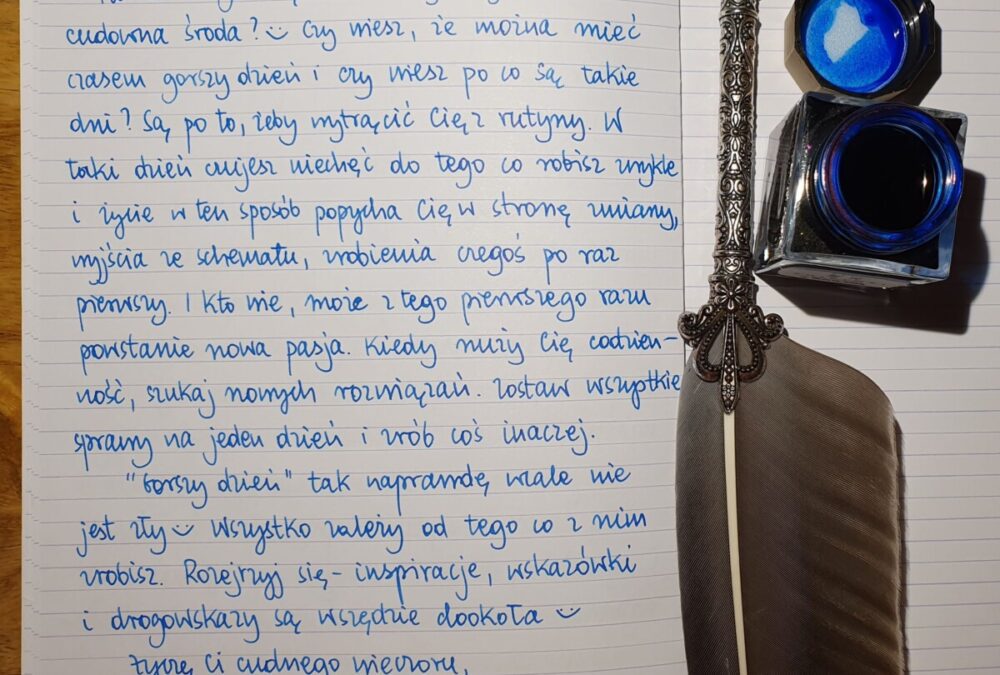 cudowna środa? :) Czy wiesz, że można mieć
czasem gorszy dzień i czy wiesz po co są takie
dni? Są po to, żeby wytrącić Cię z rutyny. W
taki dzień czujesz niechęć do tego co robisz zwykle
i życie w ten sposób popycha Cię w stronę zmiany,
wyjścia ze schematu, zrobienia czegoś po raz
pierwszy. I kto wie, może z tego pierwszego razu
powstanie nowa pasja. Kiedy nuży Cię codzien-
ność, szukaj nowych rozwiązań. Zostaw wszystkie
sprawy na jeden dzień i zrób coś inaczej.
"Gorszy dzień" tak naprawdę wcale nie
jest zły :) Wszystko zależy od tego co z nim
zrobisz. Rozejrzyj się - inspiracje, wskazówki
i drogowskazy są wszędzie dookoła :)
Życzę Ci cudnego wieczoru,